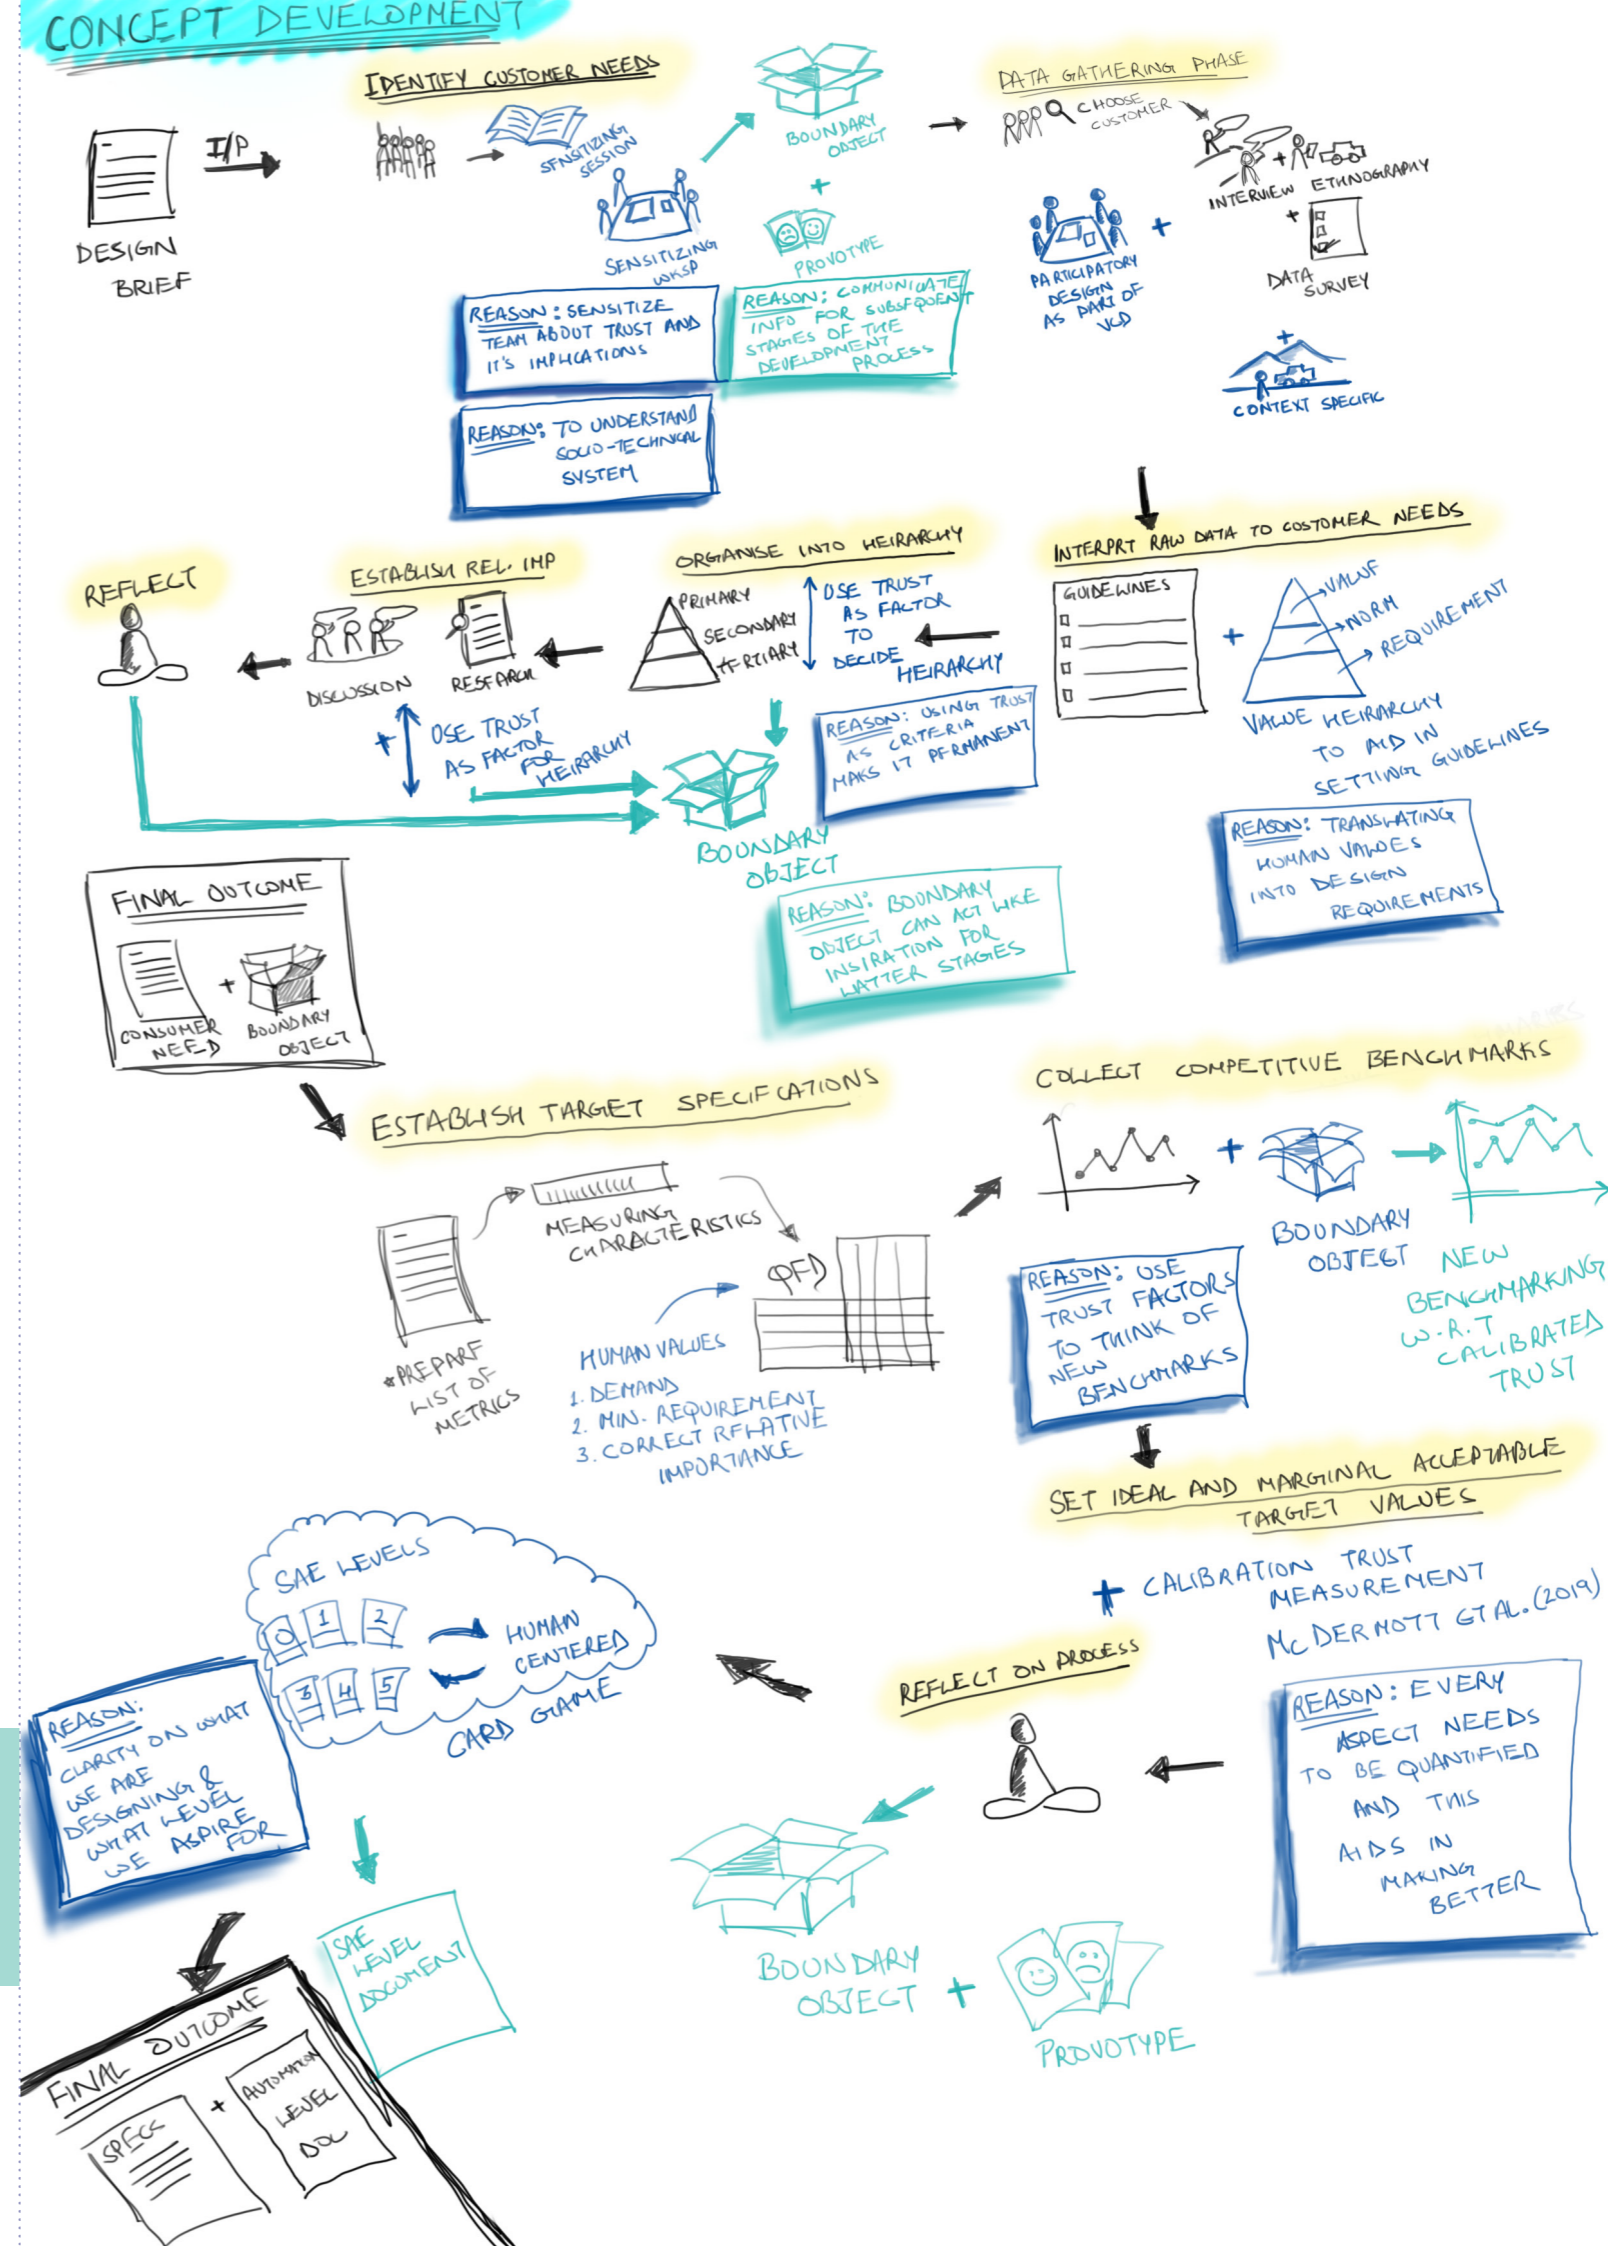 CONCEPT DEVELOPMENT
IDENTIFY CUSTOMER NEEDS
DESIGN
BRIEF
I/P
SENSITIZING
SESSION
SENSITIZING
WKSP
BOUNDARY
OBJECT
+
PROVOTYPE
REASON: SENSITIZE
TEAM ABOUT TRUST AND
IT'S IMPLICATIONS
REASON: COMMUNICATE
INFO FOR SUBSEQUENT
STAGES OF THE
DEVELOPMENT
PROCESS
REASON: TO UNDERSTAND
SOCIO-TECHNICAL
SYSTEM
DATA GATHERING PHASE
CHOOSE
CUSTOMER
+
INTERVIEW ETHNOGRAPHY
+
DATA
SURVEY
+
PARTICIPATORY
DESIGN
AS PART OF
VCD
+
CONTEXT SPECIFIC
INTERPRT RAW DATA TO COSTOMER NEEDS
GUIDELINES
+
VALUE
NORM
REQUIREMENT
VALUE HEIRARCHY
TO AID IN
SETTING GUIDELINES
REASON: TRANSLATING
HUMAN VALUES
INTO DESIGN
REQUIREMENTS
ORGANISE INTO HEIRARCHY
PRIMARY
SECONDARY
TERTIARY
USE TRUST
AS FACTOR
TO
DECIDE
HEIRARCHY
REASON: USING TRUST
AS CRITERIA
MAKS IT PERMANENT
ESTABLISH REL. IMP
DISCUSSION
RESEARCH
+
USE TRUST
AS FACTOR
FOR
HEIRARCHY
REFLECT
BOUNDARY
OBJECT
REASON: BOUNDARY
OBJECT CAN ACT LIKE
INSIRATION FOR
LATTER STAGES
FINAL OUTCOME
CONSUMER
NEED
+
BOUNDARY
OBJECT
ESTABLISH TARGET SPECIFICATIONS
*PREPARE
LIST OF
METRICS
MEASURING
CHARACTERISTICS
QFD
HUMAN VALUES
1. DEMAND
2. MIN. REQUIREMENT
3. CORRECT RELATIVE
IMPORTANCE
COLLECT COMPETITIVE BENCHMARKS
+
BOUNDARY
OBJECT
NEW
BENCHMARKING
W.R.T
CALIBRATED
TRUST
REASON: USE
TRUST FACTORS
TO THINK OF
NEW
BENCHMARKS
SET IDEAL AND MARGINAL ACCEPTABLE
TARGET VALUES
+ CALIBRATION TRUST
MEASUREMENT
MCDERMOTT ET AL. (2019)
REASON: EVERY
ASPECT NEEDS
TO BE QUANTIFIED
AND THIS
AIDS IN
MAKING
BETTER
REFLECT ON PROCESS
BOUNDARY
OBJECT
+
PROVOTYPE
SAE LEVELS
0 1 2
3 4 5
HUMAN
CENTERED
CARD GAME
REASON:
CLARITY ON WHAT
WE ARE
DESIGNING &
WHAT LEVEL
WE ASPIRE
FOR
SAE
LEVEL
DOCUMENT
FINAL OUTCOME
SPECS
+
AUTOMATION
LEVEL
DOC